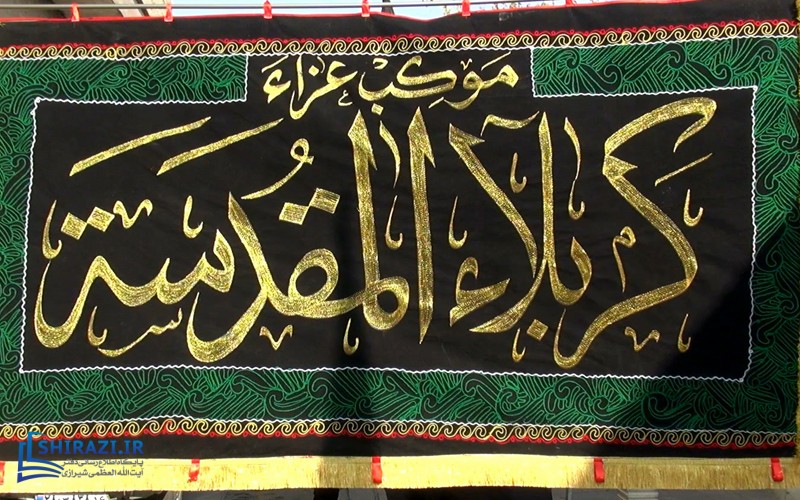 مَوكِب عَزاءَ
كَربلاء المُقدسَة
SHIRAZI.IR
پایگاه اطلاع رسانی دفتر
آیت الله العظمی شیرازی